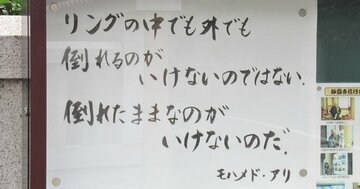 リングの中でも外でも
倒れるのが
いけないのではない.
倒れたままなのが
いけないのだ.
モハメド・アリ